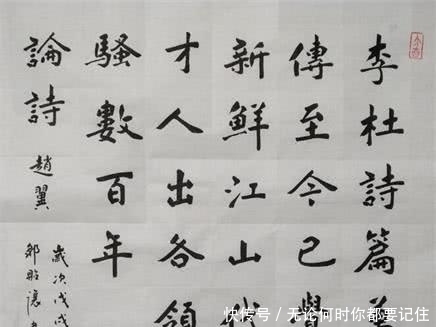 李杜詩篇萬
傳至今已覺
新鮮江山代
才人出各領
騷數百年
論詩 趙翼
歲次戊戌
快传号 / 无论何时你都要记住